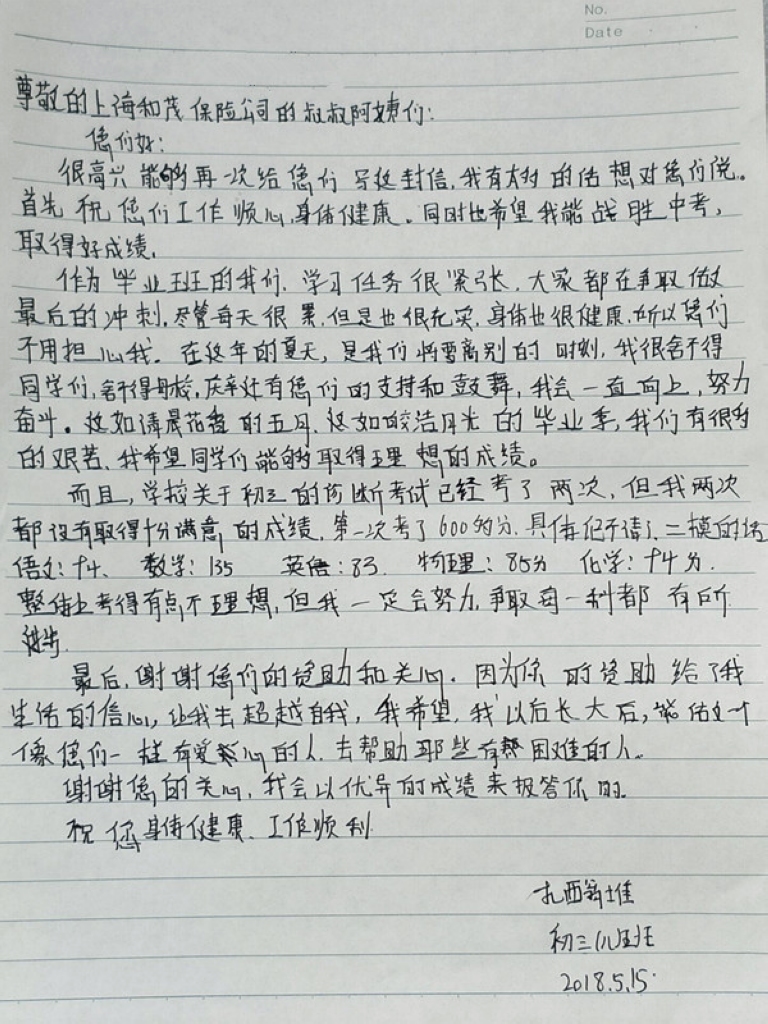 No.
Date
尊敬的上海和茂保险公司的叔叔阿姨们：
您们好：
很高兴能够再一次给您们写这封信，我有太多的话想对您们说。
首先祝您们工作顺心，身体健康。同时也希望我能战胜中考，
取得好成绩。
作为毕业班的我们，学习任务很紧张，大家都在争取做
最后的冲刺，尽管每天很累，但是也很充实，身体也很健康，所以您们
不用担心我。在这年的夏天，是我们将要离别的时刻，我很舍不得
同学们，舍不得母校，庆幸还有您们的支持和鼓舞，我会一直向上，努力
奋斗。这如清晨花卷的五月，这如皎洁月光的毕业季，我们有很多
的艰苦，我希望同学们能够取得理想的成绩。
而且，学校关于初三的诊断考试已经考了两次，但我两次
都没有取得十分满意的成绩，第一次考了600多分，具体记不清了，二模的话
语文：94、数学：135 英语：83 物理：85分 化学：94分.
整体上考得有点不理想，但我一定会努力，争取每一科都有所
进步.
最后，谢谢您们的资助和关心。因为你的资助给了我
生活的信心，让我去超越自我，我希望，我以后长大后，能够一个
像您们一样有爱心的人，去帮助那些有困难的人。
谢谢您的关心，我会以优异的成绩来报答你的.
祝您身体健康、工作顺利
扎西翁堆
初三(八)班
2018.5.15.